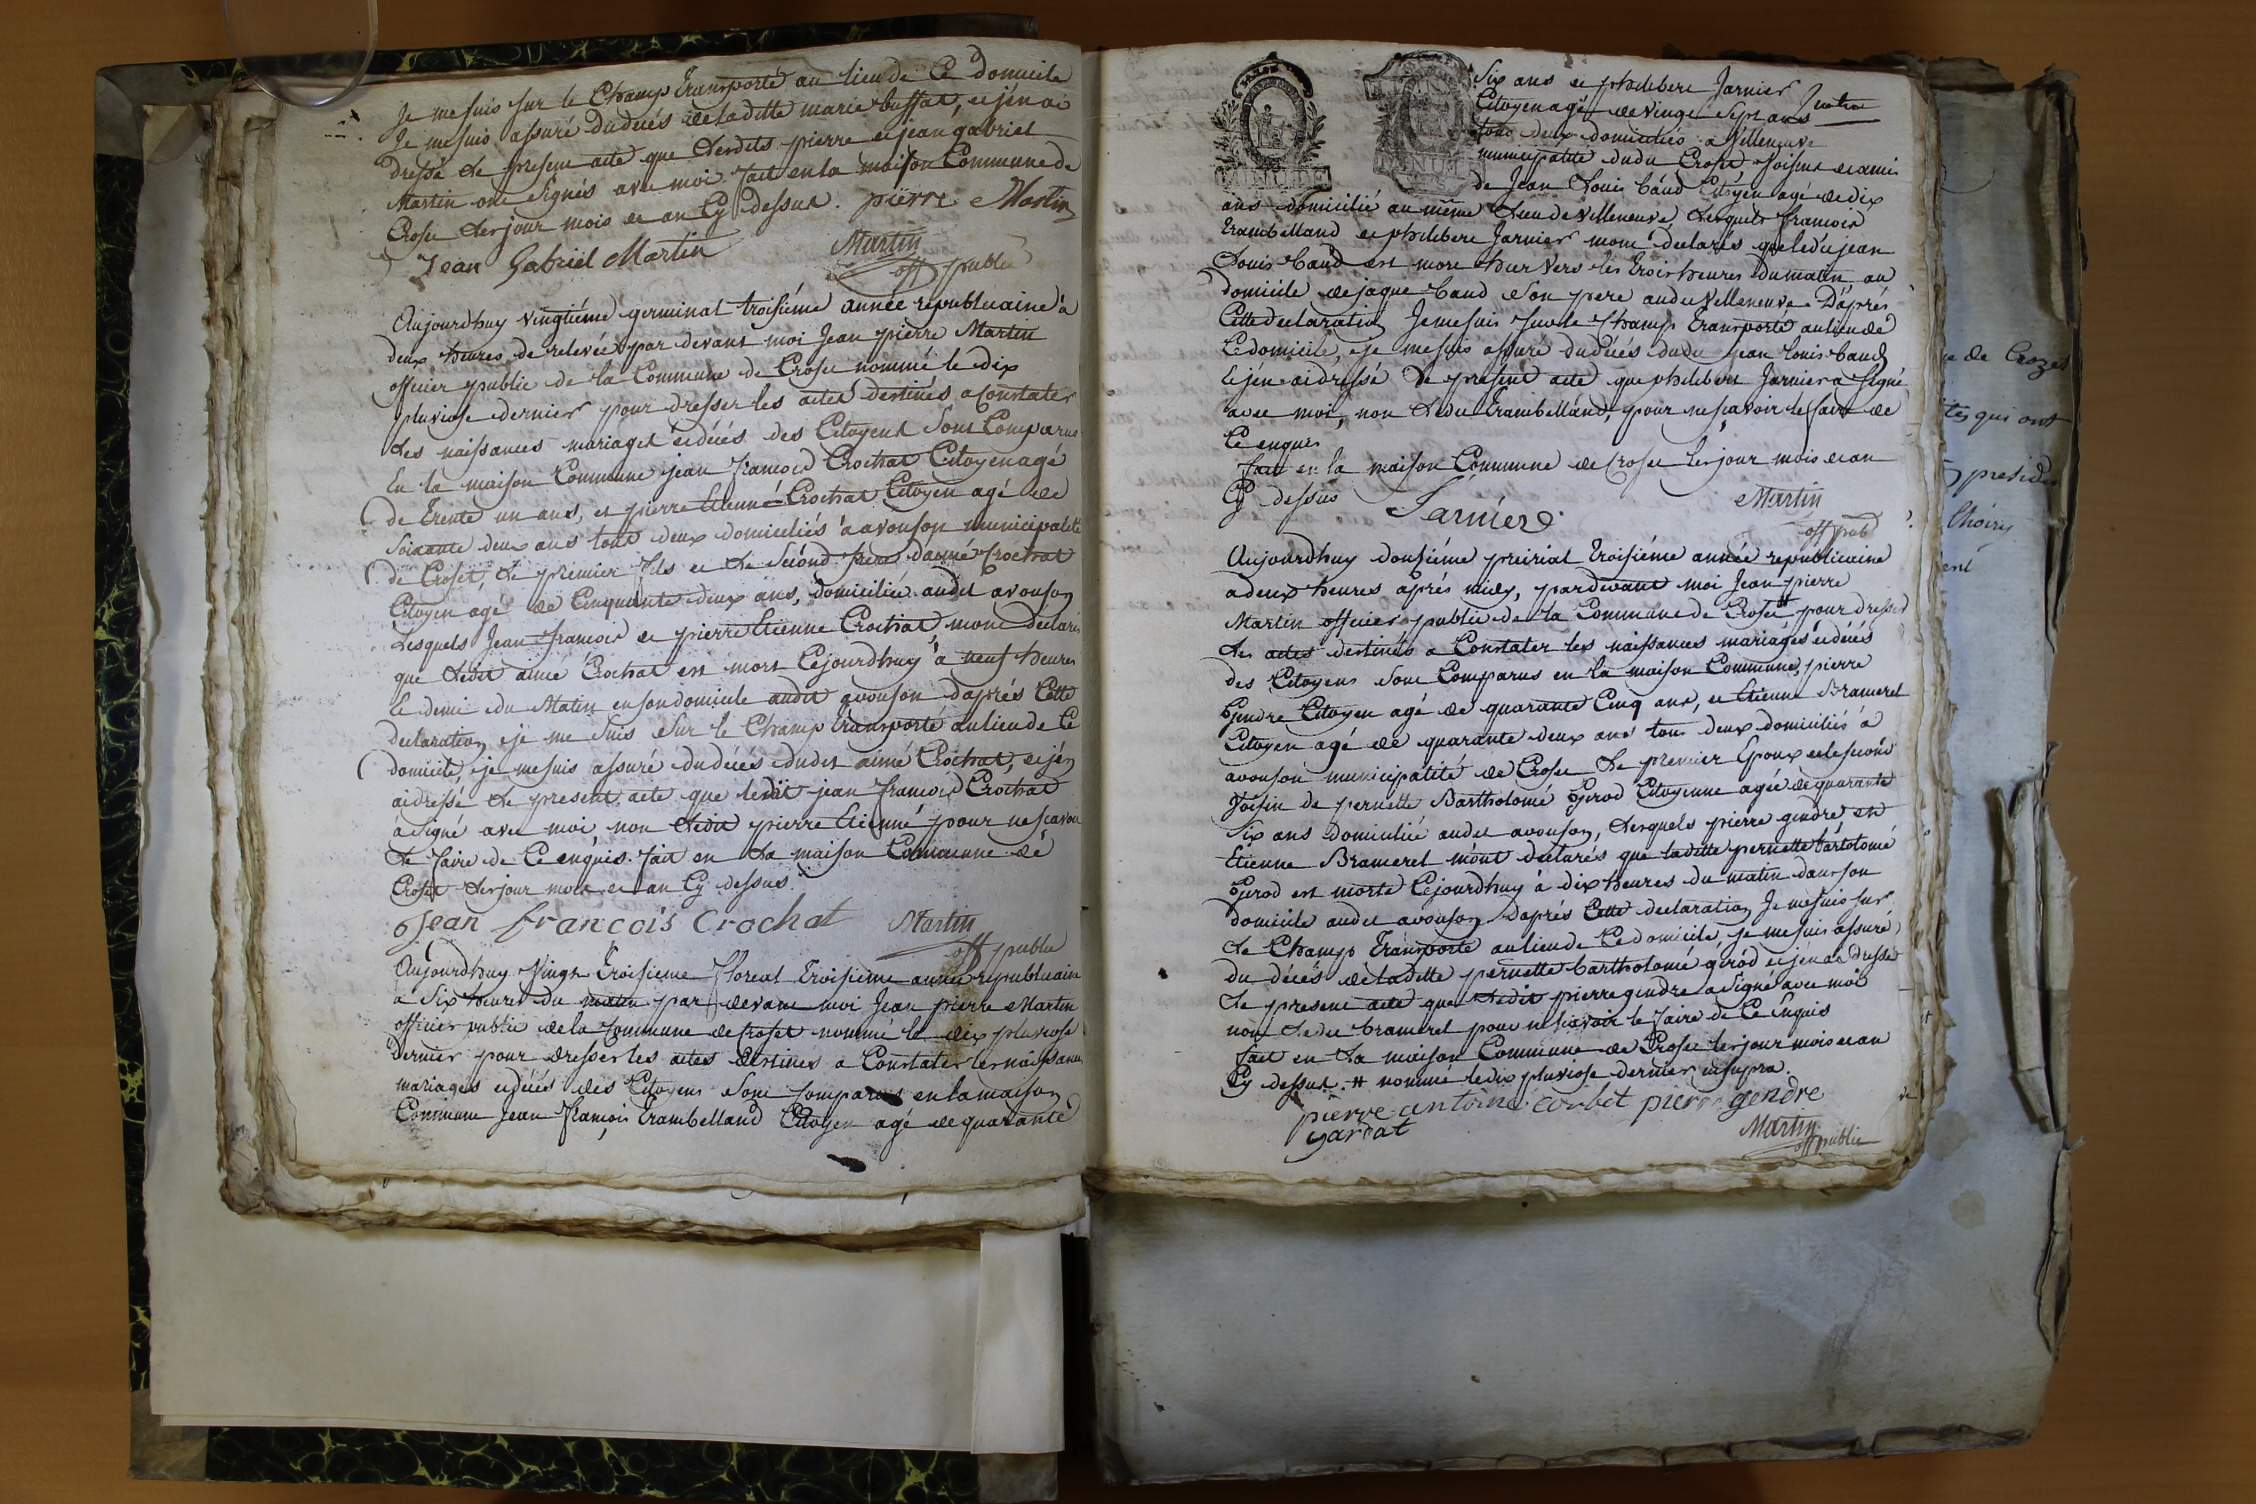 Je me suis sur le Champ Transporté au lieu de Ce domicile
Je me suis assuré du dués de laditte marie buffat, et jén ai
dressé Le present acte que Lesdits pierre et jean gabriel
Martin ont Signés avec moi fait en la maison Commune de
Croset Les jour mois et an Cy dessus. pierre Martin
Jean Gabriel Martin Martin
off publu
Aujourdhuy vingtiéme germinal troisiéme année republicaine à
deux heures de relevée par devant moi Jean pierre Martin
officier public de la Commune de Croset nommé le dix
pluviose dernier pour dresser les actes destinés a Constater
Les naissances mariages et déués des Citoyens Sont Comparus
En la maison Commune jean francois Crochat Citoyen agé
de Trente un ans, et pierre Etienne Crochat Citoyen agé de
Soixante deux ans tout deux domiciliés à avouson municipalité
de Croset, Le premier fils et Le Sécond frere d'aimé Crochat
Citoyen agé de Cinquante deux ans, domicilié audit avouson
Lesquels Jean francois et pierre Etienne Crochat mont déclarés
que Ledit aimé Crochat est mort Cejourdhuy à neuf heures
Et demi du Matin en son domicile audit avouson daprés Cette
declaration je me Suis Sur le Champ transporté au lieu de Ce
domicile, je me suis assuré du dèués dudit aimé Crochat, et jén
ai dressé Le present acte que ledit jean francois Crochat
à signé avec moi non Ledit pierre Etienné pour ne scavoir
Le faire de Ce enquis. fait en La maison Commune dé
Croset Les jour mois et an Cy dessus
Jean francois Crochat Martin
off publu
Aujourdhuy Vingt Troisieme floreal Troisieme année republicaine
à Six heures du matin par devant moi Jean pierre Martin
officier public de la Commune de Croset nommé le dix pluviose
dernier pour dresser les actes destinés a Constater les naissances
mariages et déués des Citoyens Sont Comparus en la maison
Commune Jean françois Trambelland Citoyen agé de quarante
Six ans et philibert Jarnier
Citoyen agé de vingt Sept ans
tous deux domiciliés a Villeneuve
municipalité dudit Croset Voisins et amis
de Jean Louis baud Citoyen agé de dix
ans domicilié au même Lieu de villeneuve Lesquels francois
Trambelland et philibert Jarnier mont déclarés que ledit jean
Louis baud est mort hier vers les trois heures du matin au
domicile de jaque baud son pere audit Villeneuve D'aprés
Cette declaration Je me suis sur le Champ Transporté au lieu de
Ce domicile, je me suis assuré du dèués dudit jean louis baud
Et jén ai dressé Le present acte que philibert Jarnier a signé
avec moi, non Ledit Trambelland, pour ne scavoir le faire de
Ce enquis
fait en la maison Commune de Croset les jour mois et an
Cy dessus Jarnier Martin
off pub
Aujourdhuy douziéme preirial troisiéme année republicaine
a deux heures aprés midy, par devant moi Jean pierre
Martin officier public de la Commune de Croset # pour dresser
Les actes destinés a Constater les naissances mariages et déués
des Citoyens Sont Comparus en la maison Commune, pierre
Gendre Citoyen agé de quarante Cinq ans, et Etienne Brameret
Citoyen agé de quarante deux ans tous deux domiciliés à
avouson municipalité de Croset Le premier Epoux et le second
Voisin de pernette Bartholomé Girod Citoyenne agée de quarante
Six ans domiciliée audit avouson, Lesquels pierre gendre et
Etienne Brameret mónt declarés que ladette pernette bartolomé
Girod est morte Cejourdhuy à dix heures du matin dans son
domicile audit avouson daprés Cette declaration Je me suis sur
Le Champ Transporté au lieu de Ce domicile, je me suis assuré
du décés de ladette pernette bartholomé girod et jén ai dressé
Le present acte que Ledit pierre gendre a signé avec moi
non Ledit brameret pour ne scavoir le faire de Ce Enquis
fait en La maison Commune de Croset les jour mois et an
Cy dessus. # nommé le dix pluviose dernier ut supra.
pierre antoine corbet pierre gendre
gardat Martin
off public
de Crozet
tés qui ont
presiden